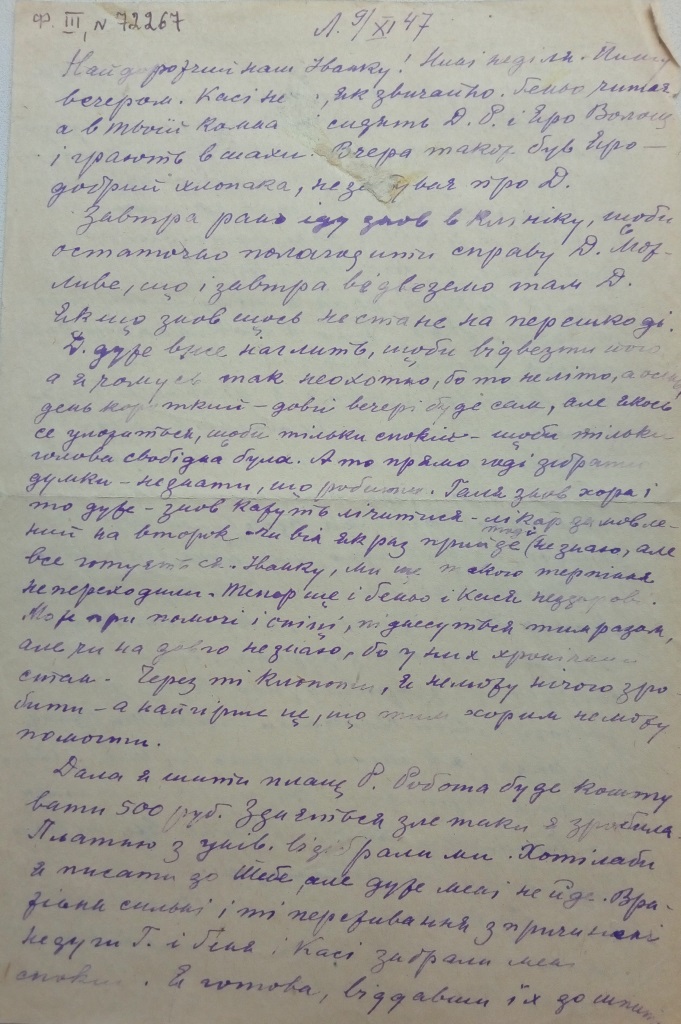 ф. III, N 72267
Л. 9/XI 47
Найдорожчий наш Іванку! Нині неділя. Пишу
вечером. Касі не , як звичайно. Беньо читає
а в твоїй комна сидять Д. Р. і Еро Волощ
і грають в шахи. Вчера також був Еро —
добрий хлопака, не про Д.
Завтра рано іду знов в клініку, щоби
остаточно полагодити справу Д. Мож-
ливе, що і завтра відвеземо там Д.
Якщо знов щось не стане на перешкоді.
Д. дуже вже наглить, щоби відвезти його
а я чомусь так неохотно, бо то не літо, а осінь,
день короткий – довгі вечері буде сам, але якось
се уложиться, щоби тільки спокій – щоби тільки
голова свобідна була. А то прямо годі зібрати
думки – не знати, що робити. Галя знов хора і
то дуже – знов кажуть лічитися – лікар замовле-
ний на второк. Чи він якраз тоді прийде (не знаю, але
все готується. Іванку, ми ще такого терпіння
не переходили. Тепер ще і Беньо і Кася нездорові.
при помочі і опіці, піднесуться тим разом,
але чи на довго не знаю, бо у них хронічний
стан. Через ті клопоти, я не можу нічого зро-
бити – а найгірше це, що тим хорим не можу
помогти.
Дала я шити плащ Р. Робота буде кошту
вати 500 руб. Здається зле таки я зробила.
Платню з унів. відобрали ми. Хотіла би
я писати до Тебе, але дуже мені не йде. Вра-
жіння сильні і ті переживання з причини
недуги Г. і Беня і Касі забрали мені
спокій. Я готова, віддавши їх до шпит-